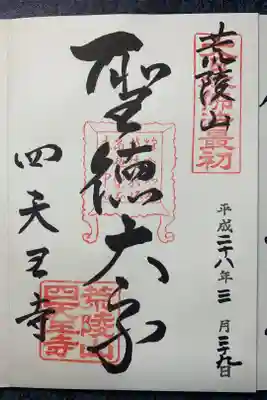 荒陵山
平成二十八年三月二十九日
聖徳太子
四天王寺
荒陵山
四天王寺